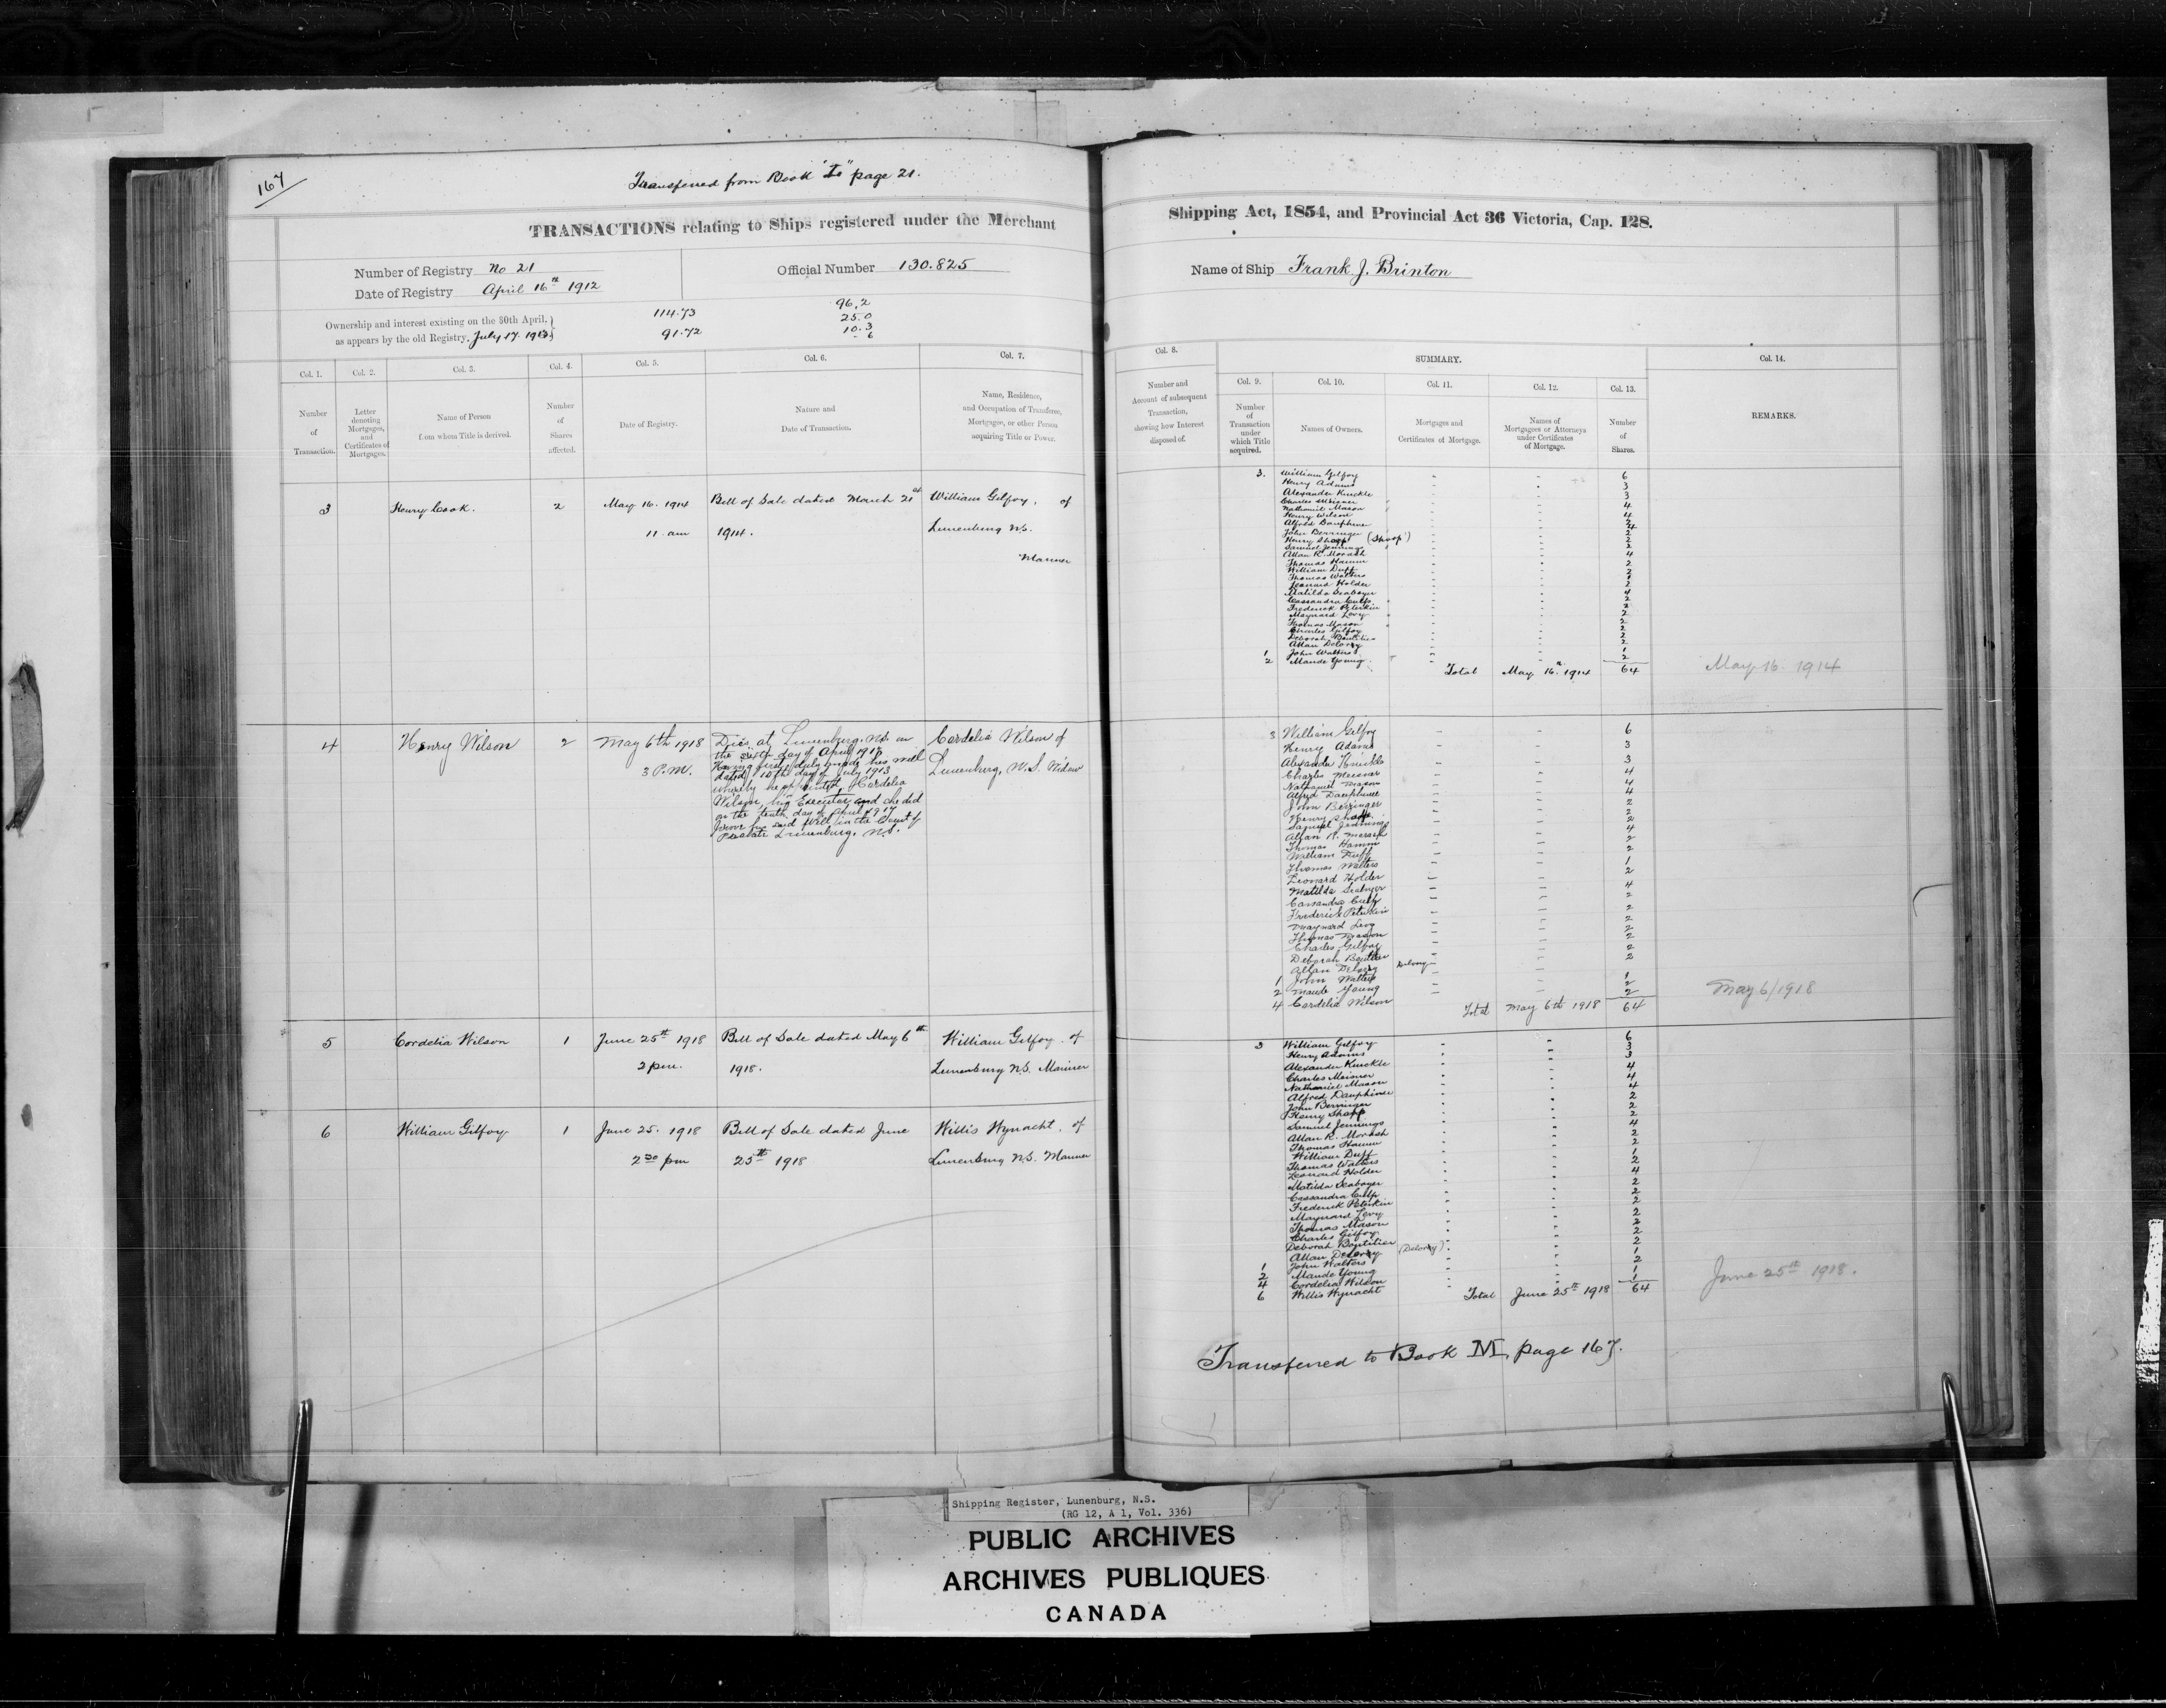 167
Transferred from Book page 21.
TRANSACTIONS relating to Ships registered under the Merchant
Shipping Act, 1854, and Provincial Act 36 Victoria, Cap. 128.
Number of Registry No 21
Official Number 130.825
Name of Ship Frank J. Brinton
Date of Registry April 16th 1912
Ownership and interest existing on the 30th April,
as appears by the old Registry, July 17. 1913
114.73
91.72
96.2
25.0
10.3
6
Col. 1.
Col. 2.
Col. 3.
Col. 4.
Col. 5.
Col. 6.
Col. 7.
Col. 8.
SUMMARY.
Col. 9.
Col. 10.
Col. 11.
Col. 12.
Col. 13.
Col. 14.
Number
of
Transaction.
Letter
denoting
Mortgages,
and
Certificates of
Mortgages.
Name of Person
from whom Title is derived.
Number
of
Shares
affected.
Date of Registry.
Nature and
Date of Transaction.
Name, Residence,
and Occupation of Transferee,
Mortgagee, or other Person
acquiring Title or Power.
Number and
Account of subsequent
Transaction,
showing how Interest
disposed of.
Number
of
Transaction
under
which Title
acquired.
Names of Owners.
Mortgages and
Certificates of Mortgage.
Names of
Mortgagees or Attorneys
under Certificates
of Mortgage.
Number
of
Shares.
REMARKS.
3 Henry Cook. 2 May 16. 1914 Bill of Sale dated March 21st William Gilfoy, of
11 am 1914. Lunenburg N.S.
Mariner
3. William Gilfoy 6
Henry Adams 3
Alexander Knickle 3
Charles Meisner 4
Nathaniel Mason
Henry Wilson
Alfred Dauphinee
John Berringer
Henry Sharp (Sharp)
Samuel Jennings
Allan R. Morash
Thomas Hamm
William Duff
Thomas Walters
Leonard Holder
Matilda Seaboyer
Cassandra Culp
Frederick Peterkin
Maynard Levy
Thomas Mason
Charles Gilfoy
Deborah Boutilier
Allan Delorey
1 John Walters 1
2 Maude Young 2
Total May 16th 1914 64
May 16. 1914
4 Henry Wilson 2 May 6th 1918 Died at Lunenburg, N.S. on
3 P.M. the sixth day of April 1917
Having first duly made his will
dated 10th day of July 1913
whereby he appointed Cordelia
Wilson, his Executor and she did
on the tenth day of April 1917
prove the said Will in the Court of
Probate Lunenburg, N.S.
Cordelia Wilson of
Lunenburg, N.S. Widow
3 William Gilfoy 6
Henry Adams 3
Alexander Knickle 3
Charles Meisner 4
Nathaniel Mason 4
Alfred Dauphinee 4
John Berringer 2
Henry Sharp 2
Samuel Jennings 2
Allan R. Morash 4
Thomas Hamm 2
William Duff 2
Thomas Walters 1
Leonard Holder 2
Matilda Seaboyer 4
Cassandra Culp 2
Frederick Peterkin 2
Maynard Levy 2
Thomas Mason 2
Charles Gilfoy 2
Deborah Boutilier 2
Allan Delorey 2
1 John Walters 1
2 Maude Young 2
4 Cordelia Wilson 2
Total May 6th 1918 64
May 6/1918
5 Cordelia Wilson 1 June 25th 1918 Bill of Sale dated May 6th William Gilfoy, of
2 pm. 1918. Lunenburg N.S. Mariner
6 William Gilfoy 1 June 25. 1918 Bill of Sale dated June Willis Wynacht, of
2 30 pm 25th 1918 Lunenburg N.S. Mariner
3 William Gilfoy 6
Henry Adams 3
Alexander Knickle 3
Charles Meisner 4
Nathaniel Mason 4
Alfred Dauphinee 4
John Berringer 2
Henry Sharp 2
Samuel Jennings 2
Allan R. Morash 4
Thomas Hamm 2
William Duff 2
Thomas Walters 1
Leonard Holder 2
Matilda Seaboyer 4
Cassandra Culp 2
Frederick Peterkin 2
Maynard Levy 2
Thomas Mason 2
Charles Gilfoy 2
Deborah Boutilier 2
Allan Delorey (Delorey) 2
1 John Walters 1
2 Maude Young 2
4 Cordelia Wilson 1
6 Willis Wynacht 1
Total June 25th 1918 64
June 25th 1918.
Transferred to Book M, page 167.
Shipping Register, Lunenburg, N.S.
(RG 12, A 1, Vol. 336)
PUBLIC ARCHIVES
ARCHIVES PUBLIQUES
CANADA